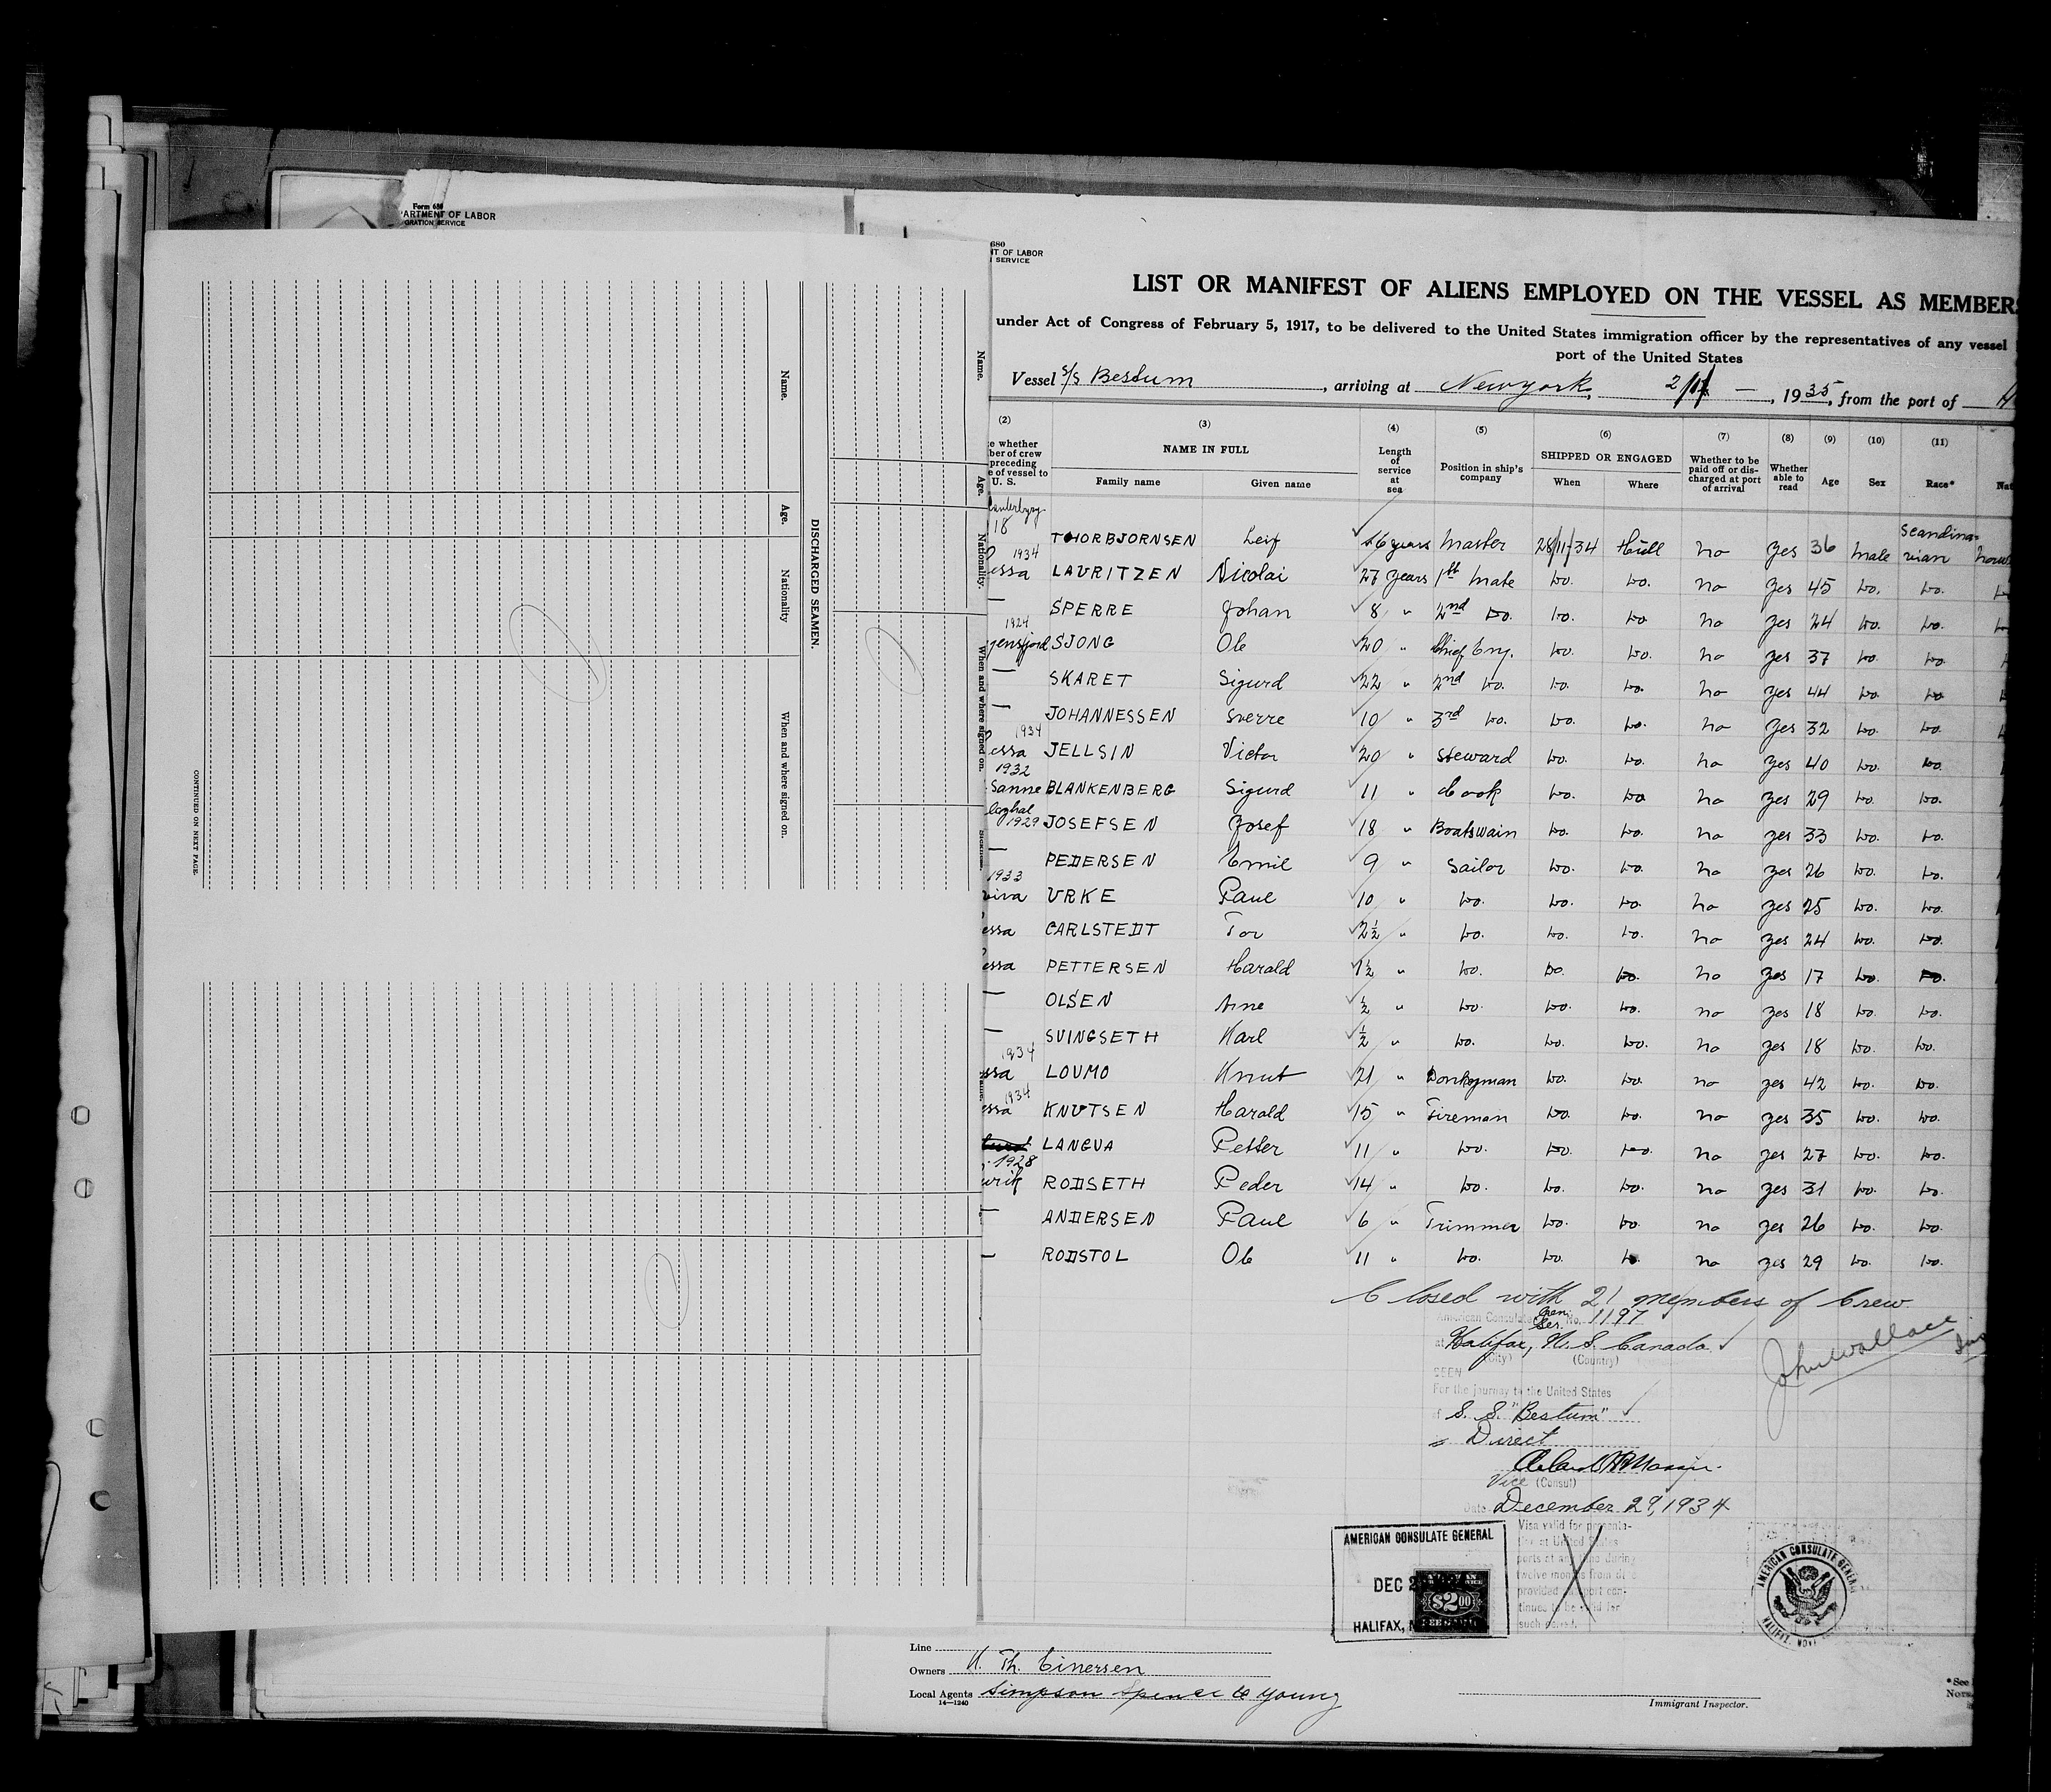 Form 680
ARTMENT OF LABOR
GRATION SERVICE
Name.
Age.
Nationality
When and where signed on.
DISCHARGED SEAMEN.
Name.
Age.
Nationality.
When and where signed on.
CONTINUED ON NEXT PAGE.
680
IT OF LABOR
SERVICE
LIST OR MANIFEST OF ALIENS EMPLOYED ON THE VESSEL AS MEMBERS
under Act of Congress of February 5, 1917, to be delivered to the United States immigration officer by the representatives of any vessel
port of the United States
Vessel S/S Bestum, arriving at Newyork, 1935, from the port of
(2) (3) (4) (5) (6) (7) (8) (9) (10) (11)
e whether
ber of crew
preceding
e of vessel to
U. S.
NAME IN FULL
Family name Given name
Length of service at sea
Position in ship's company
SHIPPED OR ENGAGED
When Where
Whether to be paid off or discharged at port of arrival
Whether able to read
Age Sex Race*
18
THORBJORNSEN Leif 16 years Master 28/11-34 Hull no yes 36 male Scandinavian
1934
essa LAURITZEN Nicolai 27 years 1st Mate do. do. no yes 45 do. do.
— SPERRE Johan 8 " 2nd do. do. do no yes 24 do. do.
1924
gensfjord SJONG Ole 20 " Chief Eng. do. do. no yes 37 do. do.
— SKARET Sigurd 22 " 2nd do. do. do. no yes 44 do. do
— JOHANNESSEN Sverre 10 " 3rd do. do. do. no yes 32 do. do.
1934
essa JELLSIN Victor 20 " Steward do. do. no yes 40 do. do.
1932
Sanne BLANKENBERG Sigurd 11 " Cook do. do no yes 29 do. do.
1929 JOSEFSEN Josef 18 " Boatswain do. do. no yes 33 do. do.
— PEDERSEN Emil 9 " Sailor do. do. no yes 26 do. do.
1933
viva URKE Paul 10 " do. do. do. no yes 25 do. do.
essa CARLSTEDT Tor 2½ " do. do. do. no yes 24 do. do.
essa PETTERSEN Harald 1½ " do. do. do. no yes 17 do. do.
— OLSEN Arne ½ " do. do. do. no yes 18 do. do.
— SVINGSETH Karl ½ " do. do. do. no yes 18 do. do.
1934
ssa LOUMO Knut 21 " Donkeyman do. do. no yes 42 do. do.
1934
essa KNUTSEN Harald 15 " Fireman do. do. no yes 35 do. do.
LANGVA Petter 11 " do. do. do. no yes 27 do. do.
1928
RODSETH Peder 14 " do. do. do. no yes 31 do. do.
— ANDERSEN Paul 6 " Trimmer do. do. no yes 26 do. do.
— RODSTOL Ole 11 " do. do. do. no yes 29 do. do.
Closed with 21 members of Crew
American Consulate Gen. Ser. No. 1197
at Halifax, N. S. Canada
(City) (Country)
SEEN
For the journey to the United States
of S. S. "Bestum"
Direct
Vice (Consul)
Date December 29, 1934
John Wallace
AMERICAN CONSULATE GENERAL
DEC
$2.00
HALIFAX,
Visa valid for presenta-
tion at United States
ports at any time during
twelve months from date
provided passport con-
tinues to be valid for
such period.
AMERICAN CONSULATE GENERAL
HALIFAX,
Line
Owners
Local Agents Simpson Spence & Young
14—1240
Immigrant Inspector.
*See